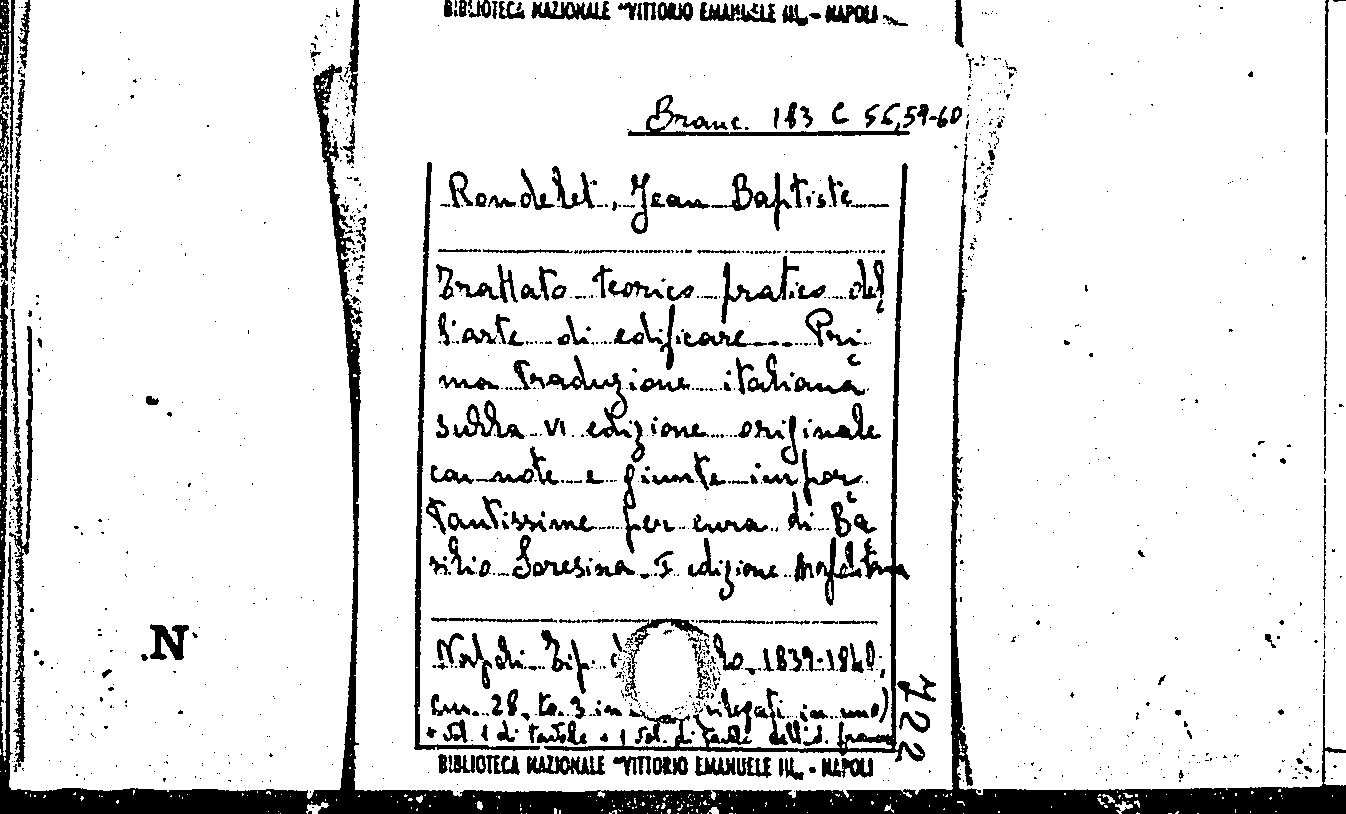 BIBLIOTECA NAZIONALE "VITTORIO EMANUELE III" - NAPOLI
Branc. 183 C 56,59-60
Rondelet, Jean Baptiste
Trattato teorico pratico del
l'arte di edificare... Pri
ma traduzione italiana
sulla VI edizione originale
con note e giunte impor
tantissime per cura di Ba
silio Soresina. I edizione Napolitana
Napoli. Tip. 1839-1840.
cm. 28. to. 3 in rilegati in uno)
+ vol. 1 di tavole + 1 vol. di tavole dell'ed.
722
BIBLIOTECA NAZIONALE "VITTORIO EMANUELE III" - NAPOLI
N